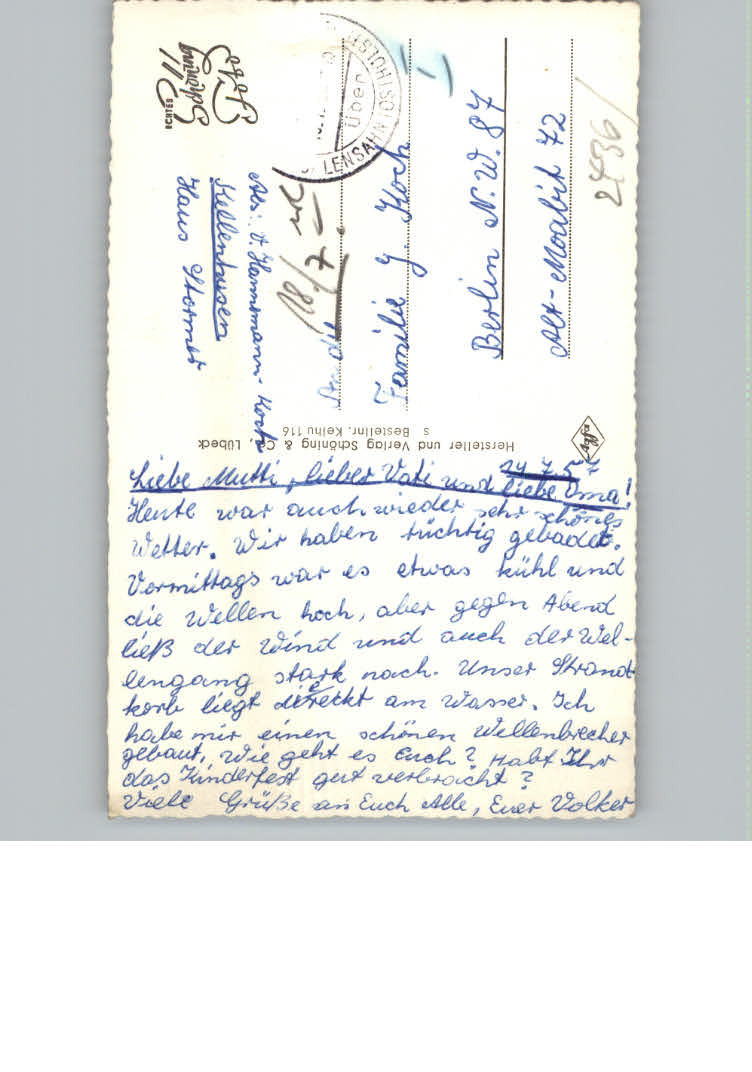 14.7.57
Liebe Mutti, lieber Vati und liebe Oma!
Heute war auch wieder sehr schönes
Wetter. Wir haben tüchtig gebadet.
Vormittags war es etwas kühl und
die Wellen hoch, aber gegen Abend
ließ der Wind und auch der Wel-
lengang stark nach. Unser Strand-
korb liegt direckt am Wasser. Ich
habe mir einen schönen Wellenbrecher
gebaut. Wie geht es Euch? Habt Ihr
das Kinderfest gut verbracht?
Viele Grüße an Euch Alle, Euer Volker
Hersteller und Verlag Schöning & Co., Lübeck
s Bestellnr. Kelhu 116
Agfa
ECHTES
Schöning
Foto
über
LENSAHN (OSTHOLST
Abs: V. Hannemann-Koch
Kellenhusen
Haus Stormer
18/7
An die
Familie G. Koch
Berlin N.W. 87
Alt-Moabit 72
2736/